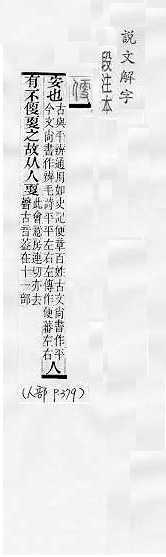 說文解字
段注本
安也古與平辨通用如史記便章百姓古文尚書作平
今文尚書作辨毛詩平平左右左傳作便蕃左右人
有不便㪅之故从人㪅此會意房連切亦去
聲古音葢在十一部
(人部 P379)